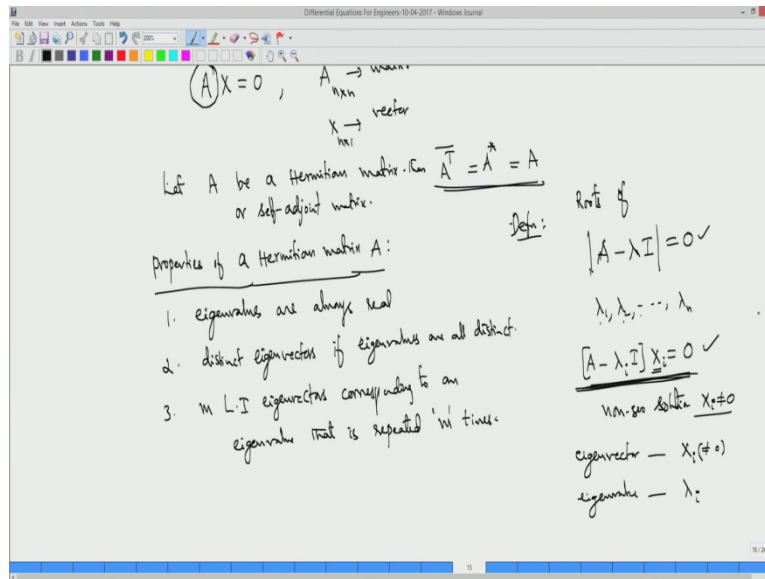 Differential Equations For Engineers-10-04-2017 - Windows Journal
File Edit View Insert Actions Tools Help
200%
B I
(A)X = 0 , A n×n → matrix
X n×1 → vector
Let A be a Hermitian matrix. Then \overline{A^T} = A^* = A
or self-adjoint matrix.
Properties of a Hermitian matrix A:
1. eigenvalues are always real
2. distinct eigenvectors if eigenvalues are all distinct.
3. m L.I eigenvectors corresponding to an
eigenvalue that is repeated 'm' times.
Defn: Roots of
|A - λI| = 0 ✓
λ₁, λ₂, ---, λₙ
[A - λᵢI] Xᵢ = 0 ✓
non-zero solution Xᵢ ≠ 0
eigenvector — Xᵢ (≠ 0)
eigenvalue — λᵢ
15